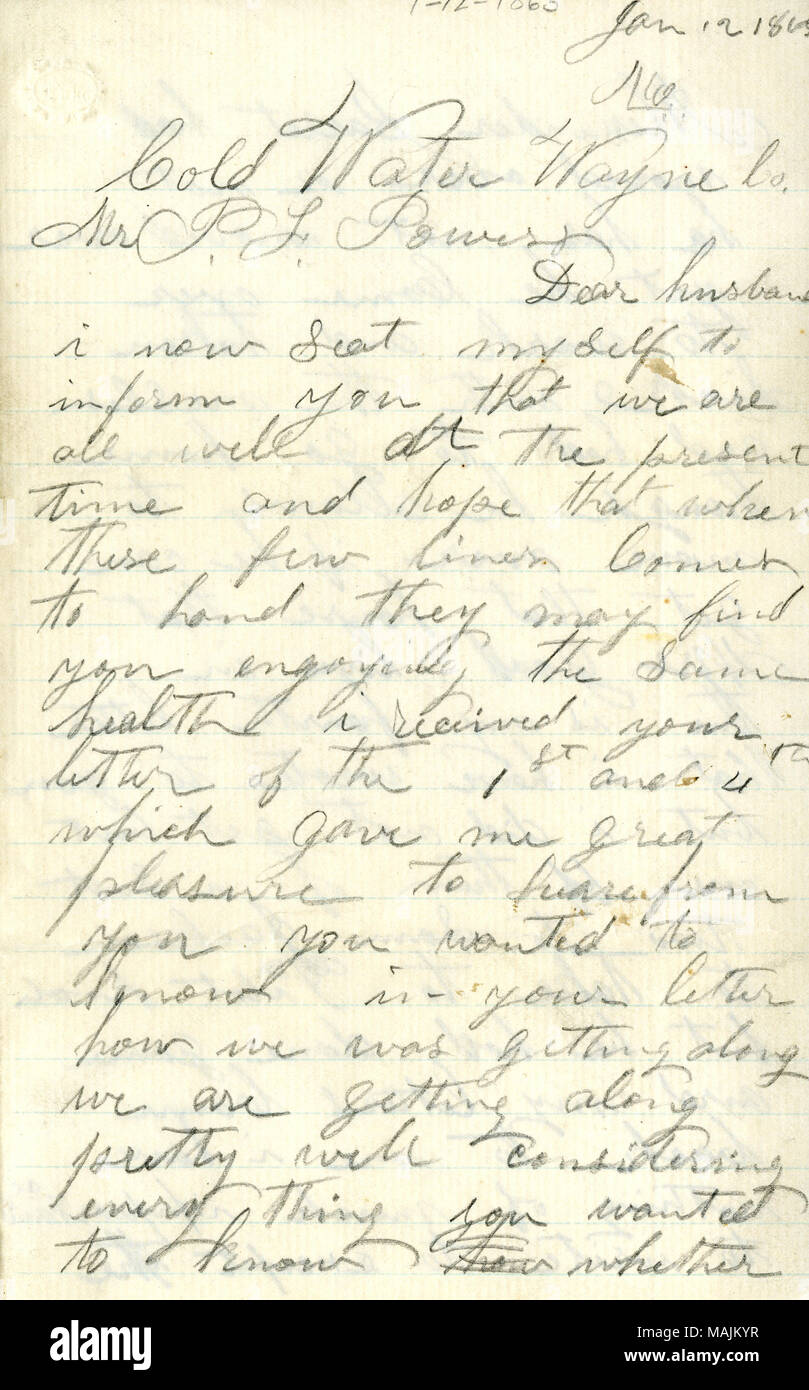 1-12-1863
Jan 12 186
Mo.
Cold Water Wayne Co.
Mr P. L. Powers
Dear husban
i now Seat my self to
inform you that we are
all well at the present
time and hope that when
these few lines Comes
to hand they may find
you engoying the Same
health i received your
letter of the 1st and 4th
which gave me great
pleasure to heare from
you you wanted to
know in your letter
how we was getting along
we are getting along
pretty well considering
every thing you wanted
to know how whether
alamy
Image ID: MAJKYR
www.alamy.com